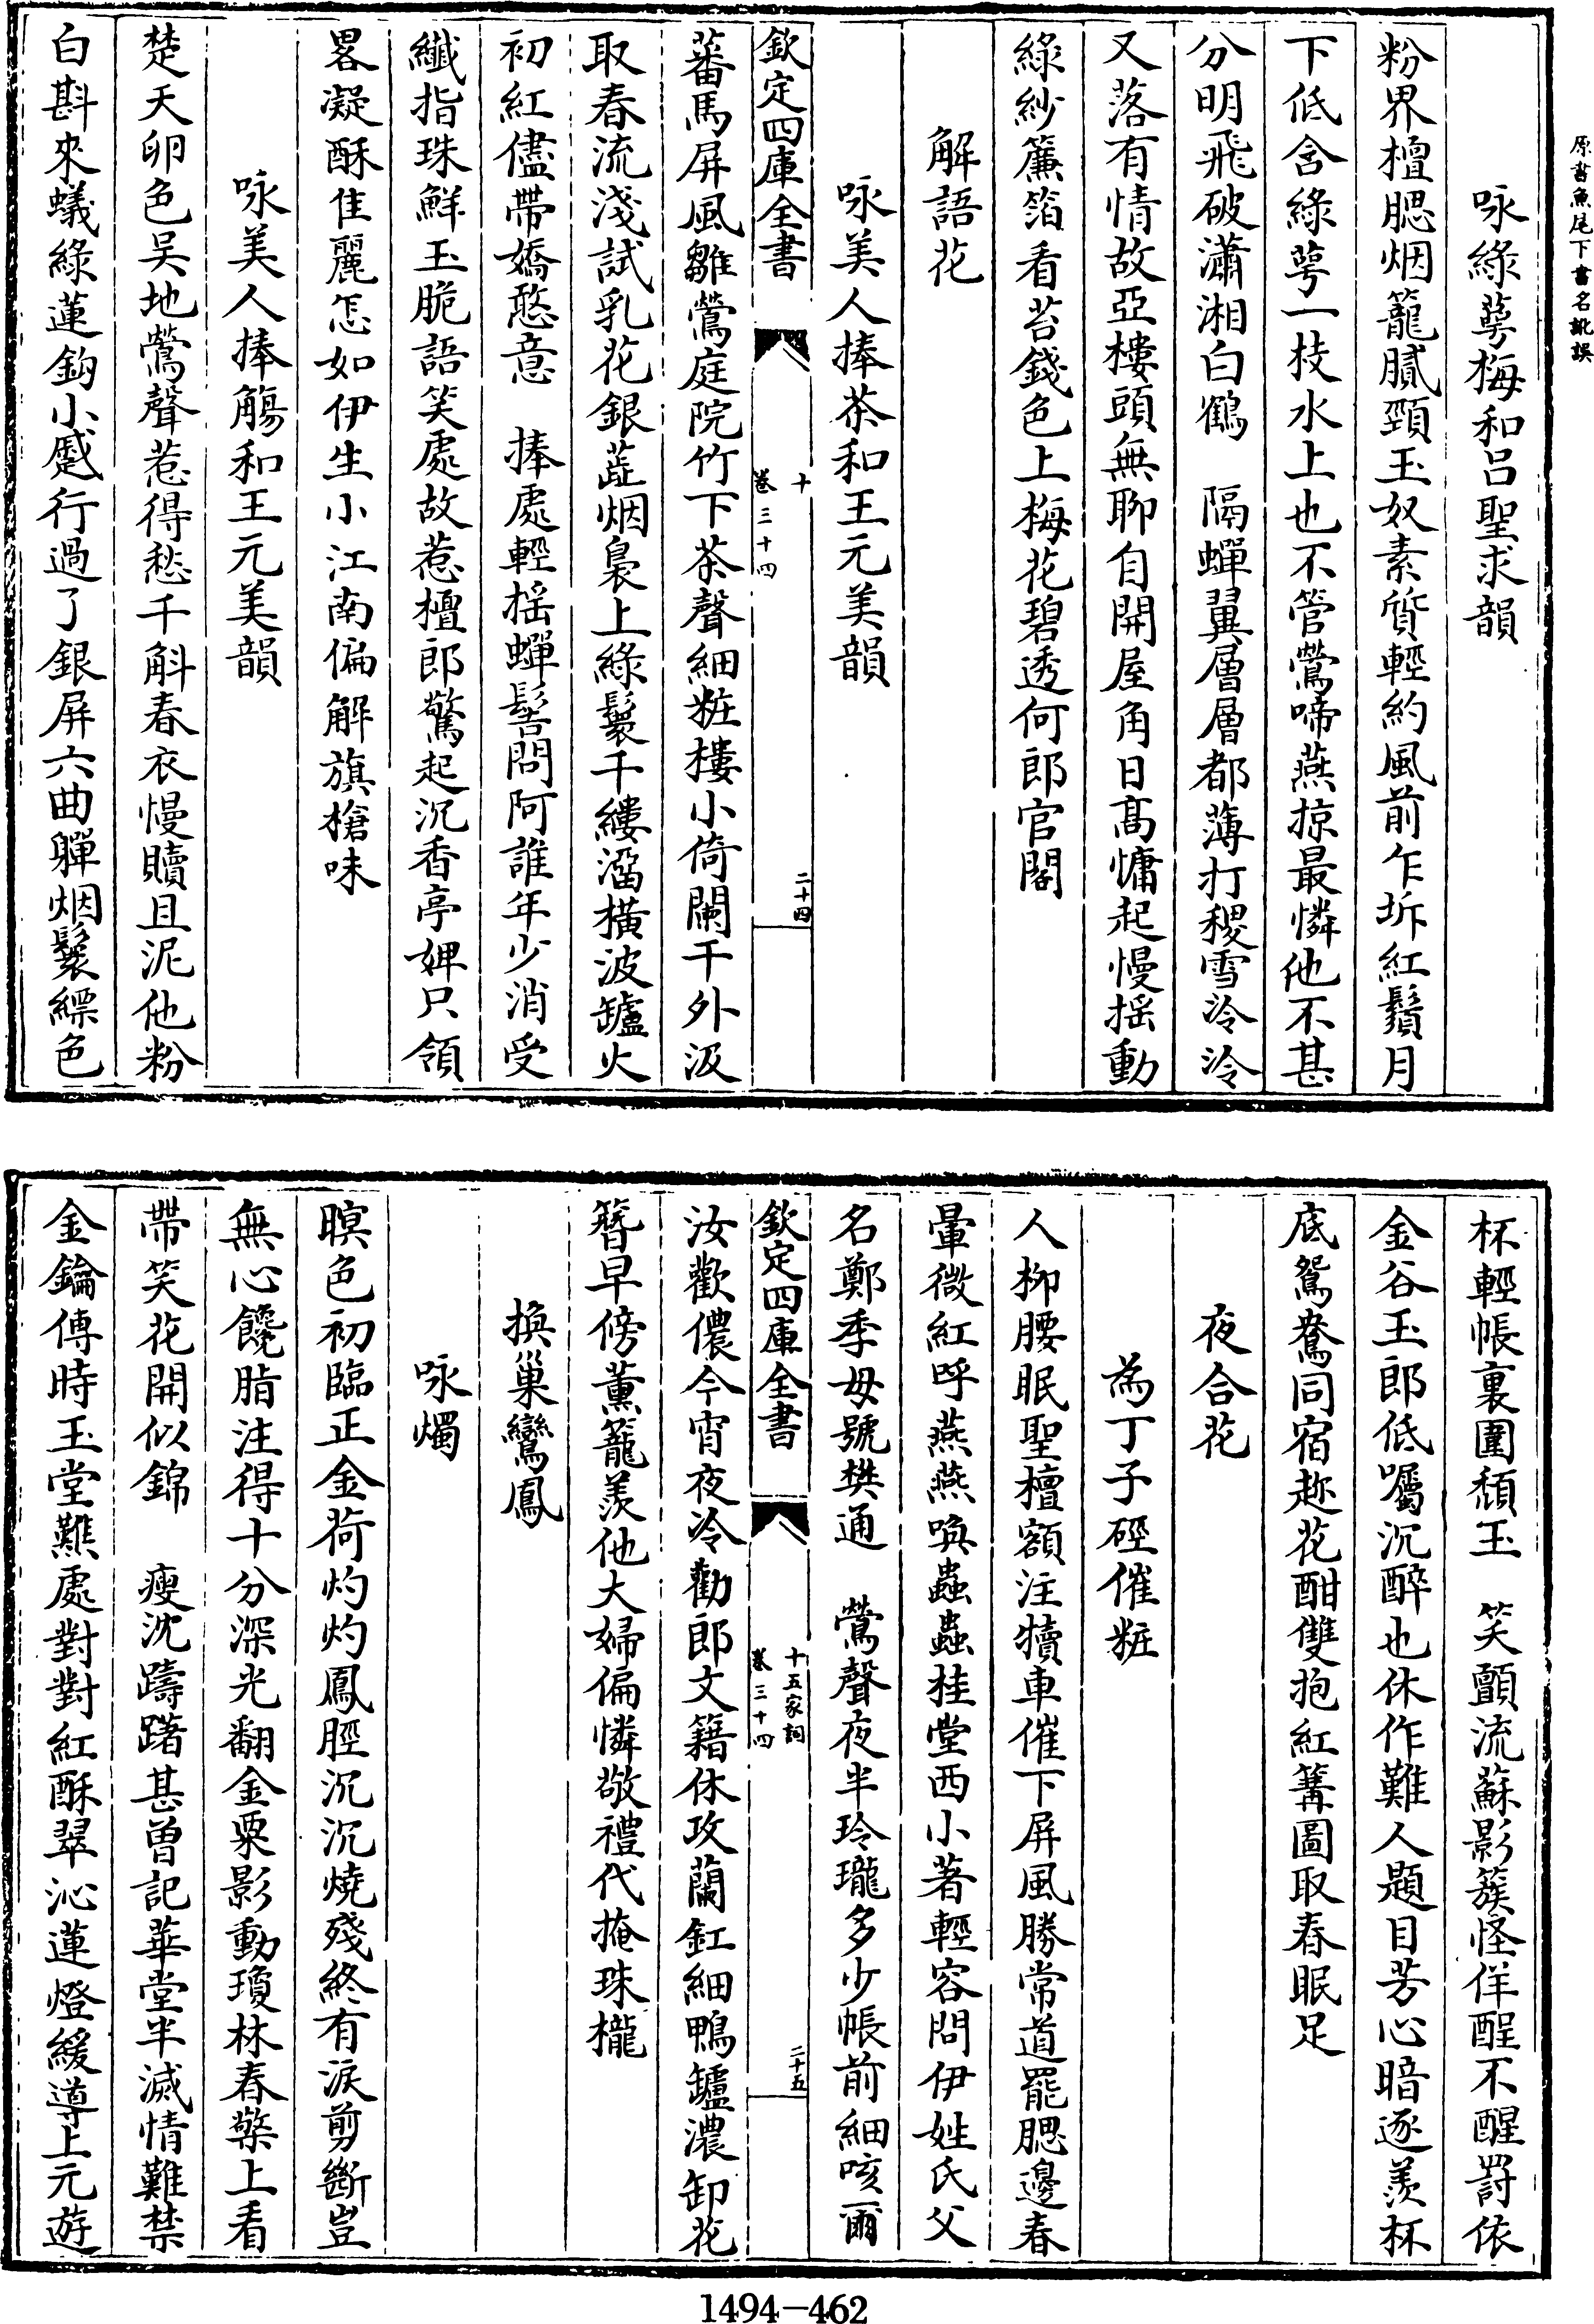 原書魚尾下書名訛誤
咏綠萼梅和呂聖求韻
粉界檀腮烟籠膩頸玉奴素質輕約風前乍坼紅鬚月
下低含綠萼一枝水上也不管鶯啼燕掠最憐他不甚
分明飛破瀟湘白鶴　隔蟬翼層層都薄打稷雪冷冷
又落有情故亞樓頭無聊自開屋角日高慵起慢搖動
綠紗簾箔看苔錢色上梅花碧透何郎官閣
解語花
咏美人捧茶和王元美韻
欽定四庫全書
十
卷三十四
二十四
蕃馬屏風雛鶯庭院竹下茶聲細粧樓小倚闌干外汲
取春流淺試乳花銀葢烟裊上綠鬟千縷溜橫波罏火
初紅儘帶嬌憨意　捧處輕搖蟬髻問阿誰年少消受
纖指珠鮮玉脆語笑處故惹檀郎驚起沉香亭婢只領
畧凝酥佳麗怎如伊生小江南偏解旗槍味
咏美人捧觴和王元美韻
楚天卵色吳地鶯聲惹得愁千斛春衣慢贖且泥他粉
白斟來蟻綠蓮鈎小蹙行過了銀屏六曲軃烟鬟縹色
杯輕帳裏圍頹玉　笑顫流蘇影簇怪佯酲不醒罸依
金谷玉郎低囑沉醉也休作難人題目芳心暗逐羨杯
底鴛鴦同宿趂花酣雙抱紅篝圖取春眠足
夜合花
為丁子硜催粧
人柳腰眠聖檀額注犢車催下屏風勝常道罷腮邊春
暈微紅呼燕燕喚蟲蟲桂堂西小著輕容問伊姓氏父
名鄭季母號樊通　鶯聲夜半玲瓏多少帳前細咳爾
欽定四庫全書
十五家詞
卷三十四
二十五
汝歡儂今宵夜冷勸郎文籍休攻蘭釭細鴨鑪濃卸花
簪早傍薰籠羨他大婦偏憐敬禮代掩珠櫳
換巢鸞鳳
咏燭
暝色初臨正金荷灼灼鳳脛沉沉燒殘終有淚剪斷豈
無心饞脂注得十分深光翻金粟影動瓊林春檠上看
帶笑花開似錦　瘦沈躊躇甚曾記華堂半滅情難禁
金鑰傳時玉堂爇處對對紅酥翠沁蓮燈緩導上元遊
1494-462